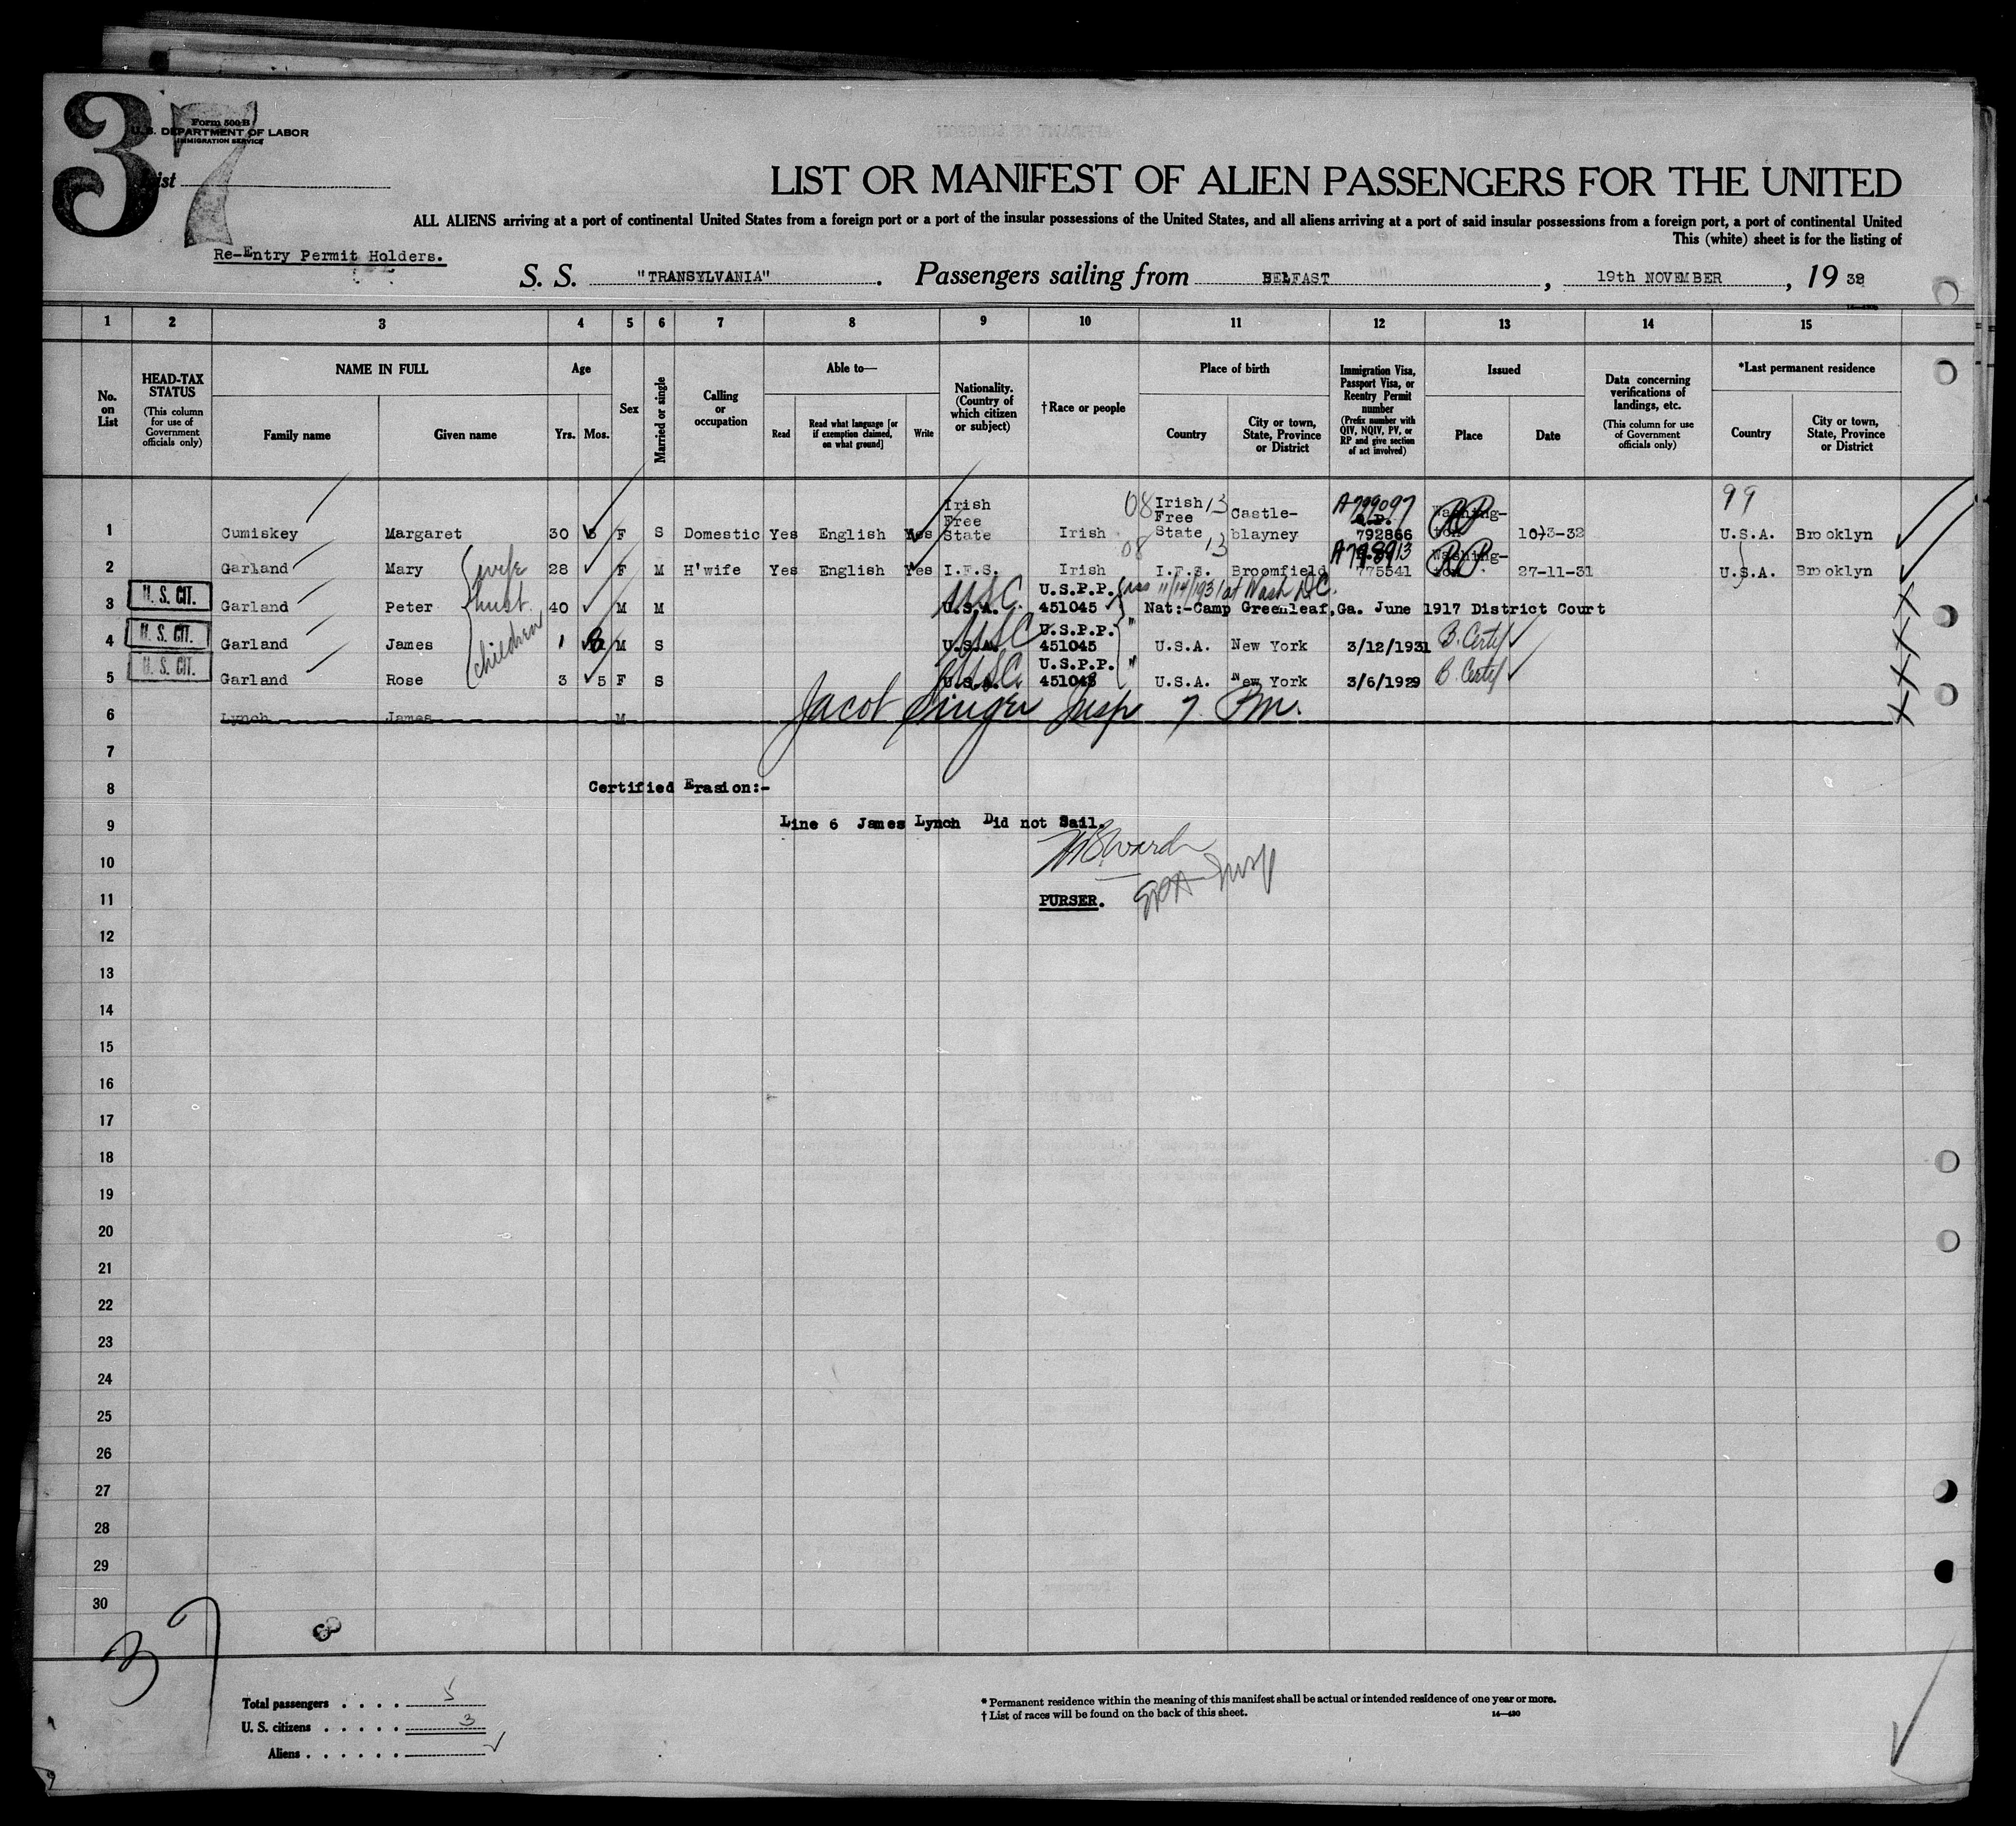 37
Form 500 B
U.S. DEPARTMENT OF LABOR
IMMIGRATION SERVICE
List
LIST OR MANIFEST OF ALIEN PASSENGERS FOR THE UNITED
ALL ALIENS arriving at a port of continental United States from a foreign port or a port of the insular possessions of the United States, and all aliens arriving at a port of said insular possessions from a foreign port, a port of continental United
This (white) sheet is for the listing of
Re-Entry Permit Holders.
S. S. "TRANSYLVANIA". Passengers sailing from BELFAST, 19th NOVEMBER, 19 32
1 2 3 4 5 6 7 8 9 10 11 12 13 14 15
No. on List
HEAD-TAX STATUS
(This column for use of Government officials only)
NAME IN FULL
Family name
Given name
Age
Yrs. Mos.
Sex
Married or single
Calling or occupation
Able to—
Read
Read what language [or if exemption claimed, on what ground]
Write
Nationality. (Country of which citizen or subject)
†Race or people
Place of birth
Country
City or town, State, Province or District
Immigration Visa, Passport Visa, or Reentry Permit number
(Prefix number with QIV, NQIV, PV, or RP and give section of act involved)
Issued
Place
Date
Data concerning verifications of landings, etc.
(This column for use of Government officials only)
*Last permanent residence
Country
City or town, State, Province or District
1 Cumiskey Margaret 30 F S Domestic Yes English Yes Irish Free State Irish 08 Irish Free State 13 Castle-blayney A799097 R.P. 792866 Washing-ton RP 10-3-32 99 U.S.A. Brooklyn
2 Garland Mary wife 28 F M H'wife Yes English Yes I.F.S. Irish 08 I.F.S. 13 Broomfield 775541 Washing-ton RP 27-11-31 U.S.A. Brooklyn
3 U. S. CIT. Garland Peter husb. 40 M M U.S.A. USC U.S.P.P. 451045 iss 11/14/1931 at Wash D.C. Nat:-Camp Greenleaf,Ga. June 1917 District Court
4 U. S. CIT. Garland James children 1 M S U.S.A. USC U.S.P.P. 451045 " U.S.A. New York 3/12/1931 B. Certf
5 U. S. CIT. Garland Rose 3 5 F S U.S.A. USC U.S.P.P. 451048 " U.S.A. New York 3/6/1929 B. Certf
6 Lynch James M Jacob Singer Insp 7 Pm.
7
8 Certified Erasion:-
9 Line 6 James Lynch Did not Sail.
10
11 PURSER.
12
13
14
15
16
17
18
19
20
21
22
23
24
25
26
27
28
29
30
37
Total passengers . . . . 5
U. S. citizens . . . . . 3
Aliens . . . . . .
* Permanent residence within the meaning of this manifest shall be actual or intended residence of one year or more.
† List of races will be found on the back of this sheet.
14—430